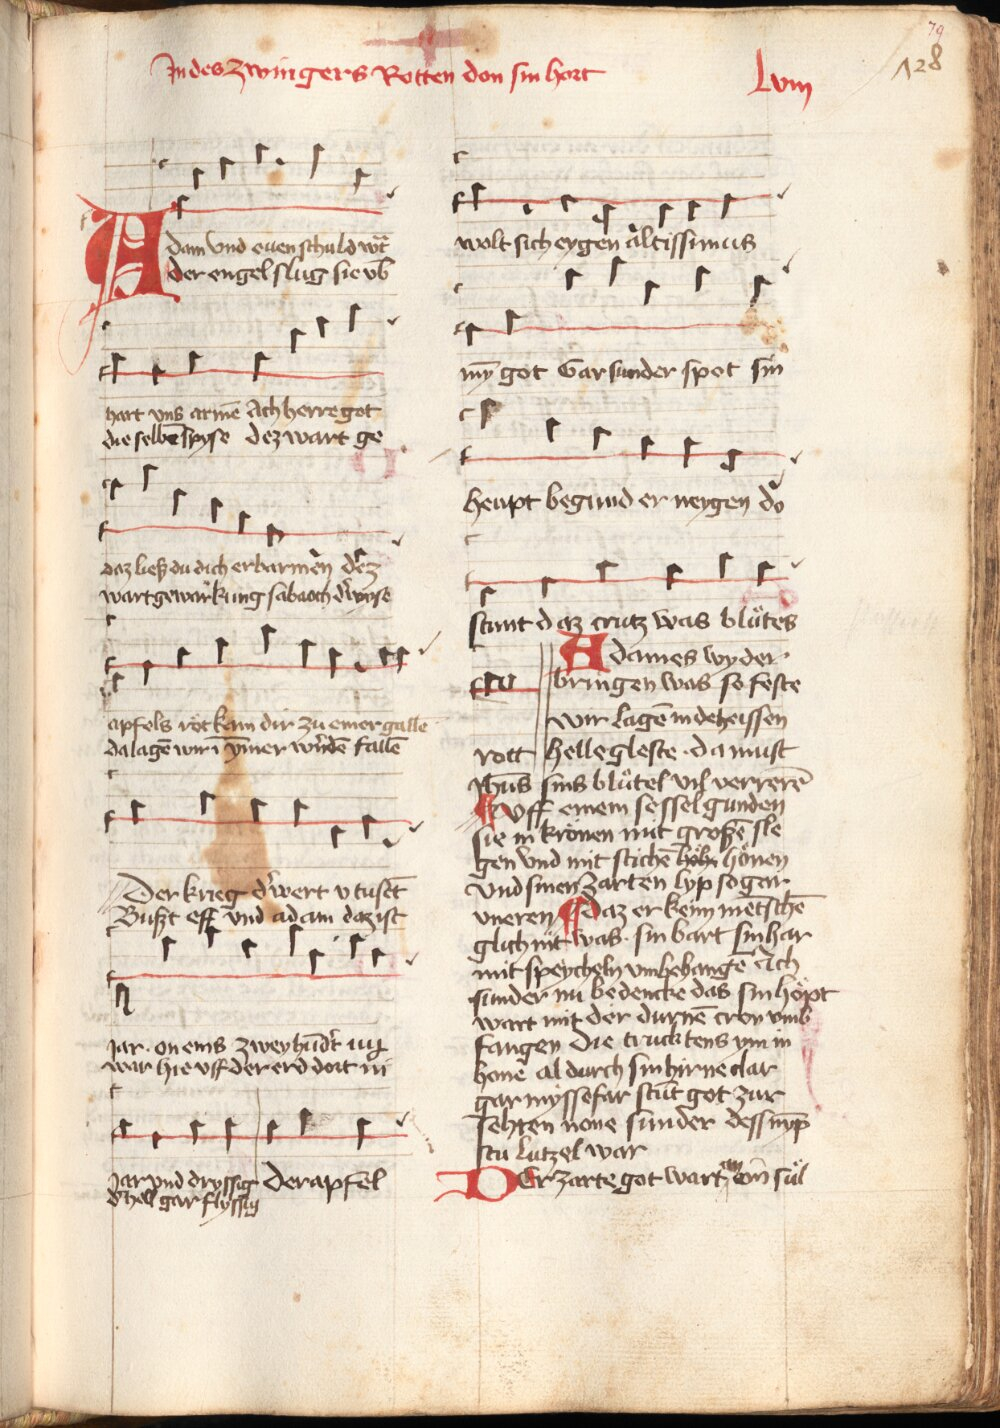 In des Zwingers Rotten don sin hort
Lviij
79
128
Adam vnd euen schuld wt̄
der engel slug sie vb̄
hart vns armē Ach herre got
die selbē spyse dez wart ge
daz ließ du dich erbarmen dez
wart gewürkung sabaoth d' wyse
apfels röt kam dir zu einer galle
da lagē wir ī ymer w'nden fallē
Der krieg d' wert v tusēt
Bußt eff vnd adam daz ist
Jar. on eins zwey hūd't iiij
war hie vff der erd dort in
Jar vnd dryssig der apfel
d' hell gar flyssig
wolt sich eygen altissimus
mȳ got Gar sunder spot sin
heupt begund er neygen do
stunt daz crutz was blůtes
Adames wyder
bringen was so feste
wir lagē in de heissen
rott helle gleste. da must
Jhūs sins blůtel vil verrerē
Vff einem sessel gunden
sie in krönen mit großē sle
gen vnd mit stichē höhnen
vnd sinen zarten lyp so gar
vneren daz er keim mētschē
glich nit was. sin bart sin har
mit speycheln vmbehange Ach
sunder nu bedencke das sin höpt
wart mit der durnē cron vmb
fangen die truck tens ym in
hone al durch sin hirne clar
gar myssefar stūt got zur
sehten none sunder dess
lutzel war
Der zarte got wart an ein sül